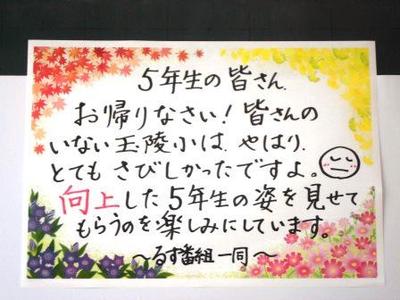 5年生の皆さん、
お帰りなさい！皆さんの
いない玉陵小は、やはり、
とてもさびしかったですよ。
向上した5年生の姿を見せて
もらうのを楽しみにしています。
～るす番組一同～